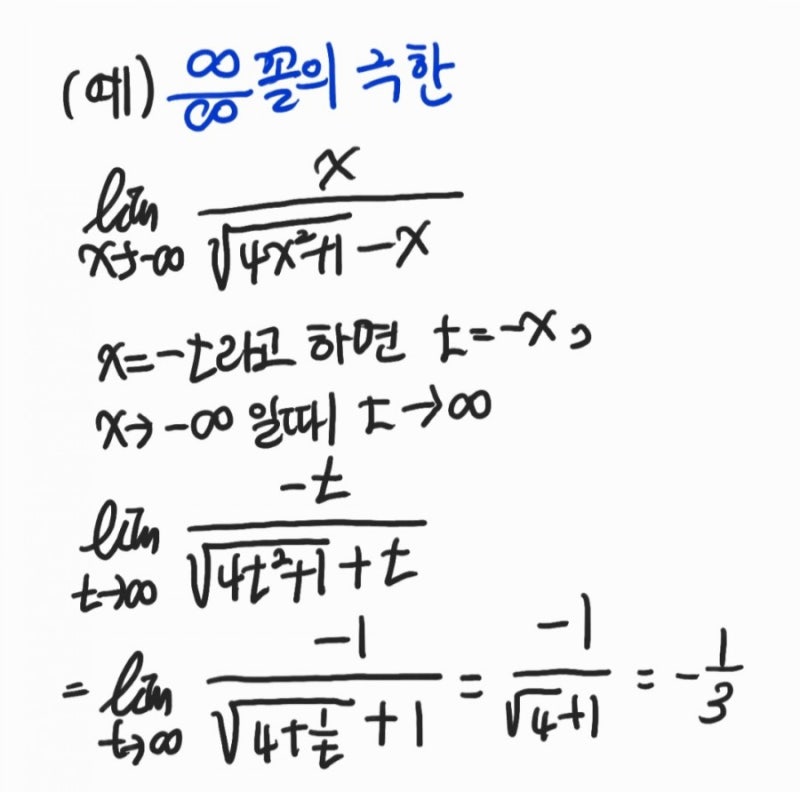 (예) ∞/∞ 꼴의 극한
lim x→-∞ x/(√(4x²+1) - x)
x=-t라고 하면 t=-x,
x→-∞ 일때 t→∞
lim t→∞ -t/(√(4t²+1) + t)
= lim t→∞ -1/(√(4+1/t) + 1) = -1/(√4+1) = -1/3